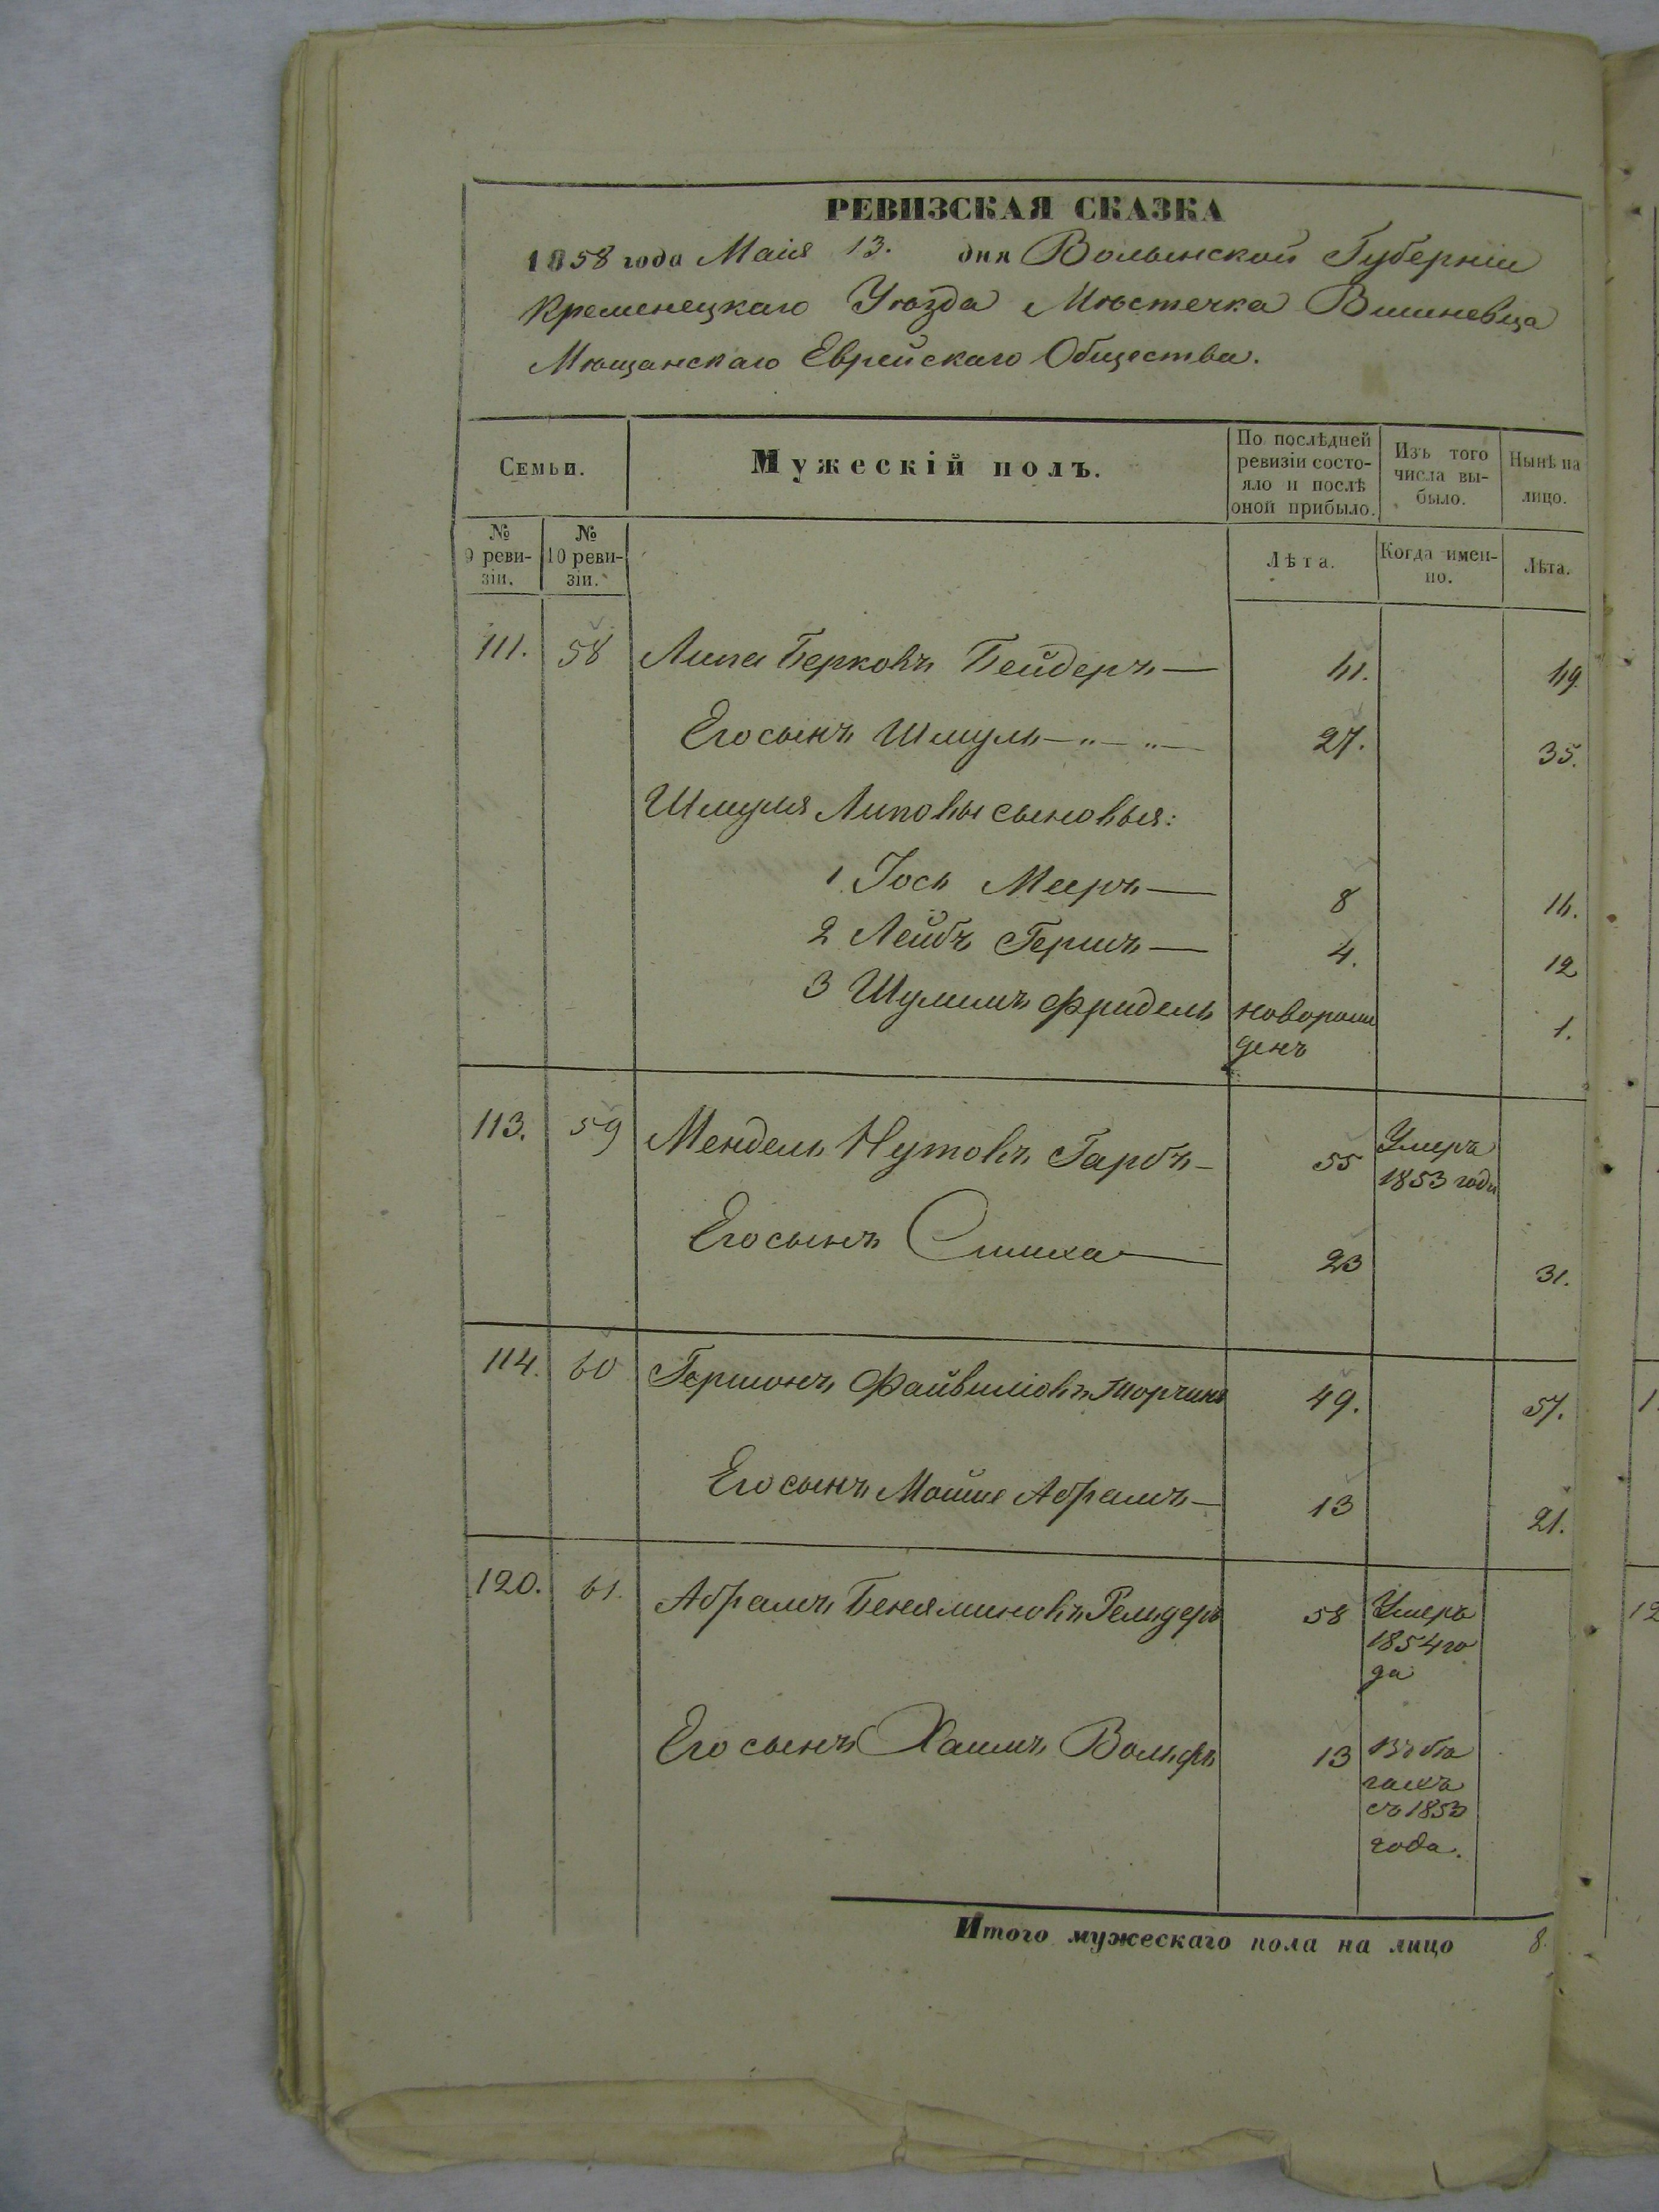 РЕВИЗСКАЯ СКАЗКА
1858 года Маія 13. дня Волынской Губерніи
Кременецкаго Уѣзда Мѣстечка Вишневца
Мѣщанскаго Еврейскаго Общества.
Семьи. Мужескій полъ. По послѣдней ревизіи состояло и послѣ оной прибыло. Изъ того числа выбыло. Нынѣ на лицо.
№ 9 ревизіи. № 10 ревизіи. Лѣта. Когда именно. Лѣта.
111. 58 Липа Берковъ Бейдеръ — 41. 49.
Его сынъ Шмуль — „ — „ — 27. 35.
Шмуля Липовы сыновья:
1 Іось Мееръ — 8 16.
2 Лейбъ Гершъ — 4. 12
3 Шулимъ Фридель новорож 1.
денъ
113. 59 Мендель Нутовъ Гарбъ — 55 Умеръ
1853 года
Его сынъ Симха — 23 31.
114. 60 Гершонъ Файвишовъ Торчинъ 49. 57.
Его сынъ Мойше Абрамъ — 13 21.
120. 61. Абрамъ Беняминовъ 58 Умеръ
1854 го
да
Его сынъ Хаимъ Вольфъ 13 Въ бѣ
гахъ
съ 1853
года.
Итого мужескаго пола на лицо 8.